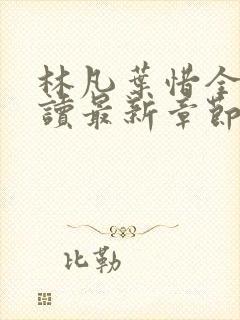 林凡葉惜全
讀最新章節
比勒